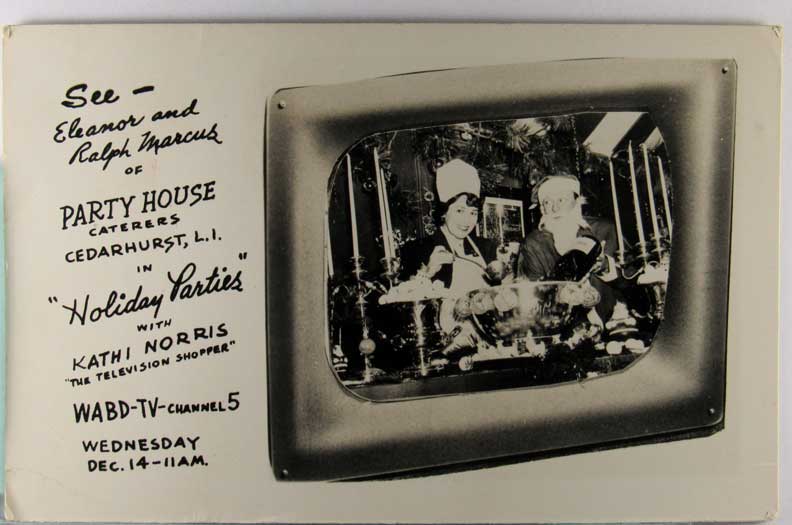 See –
Eleanor and
Ralph Marcus
OF
PARTY HOUSE
CATERERS
CEDARHURST, L.I.
IN
"Holiday Parties"
WITH
KATHI NORRIS
"THE TELEVISION SHOPPER"
WABD-TV-CHANNEL 5
WEDNESDAY
DEC. 14-11AM.